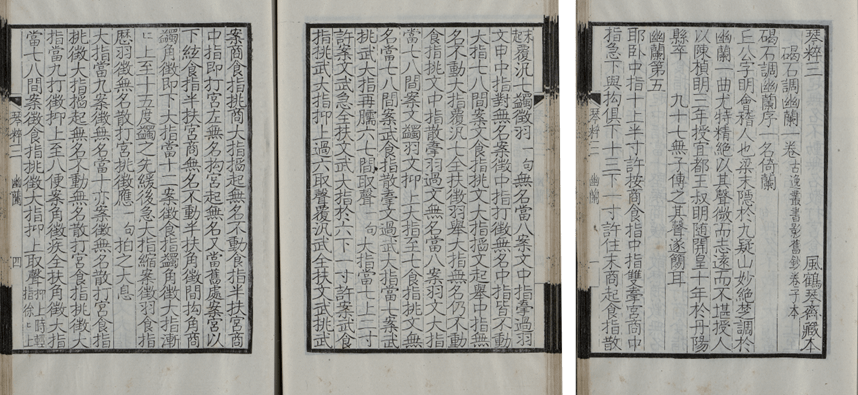 琴粹二 風鶴琴齋藏本
碣石調幽蘭一卷 古逸叢書影舊鈔卷子本
碣石調幽蘭序一名倚蘭
丘公字明會稽人也梁末隱於九疑山妙絕楚調於
幽蘭一曲尤特精絕以其聲微而志遠而不堪授人
以陳禎明三年授宜都王叔明隨開皇十年於丹陽
縣卒 九十七無子傳之其聲遂簡耳
幽蘭第五
耶臥中指十上半寸許按商食指中指雙牽宮商中
指急下與拘俱下十三下一寸許住末商起食指散
琴粹二 幽蘭 一
末起覆泛一蠲徵羽一句無名當八案文中指牽過羽
文申中指對無名案徵中指打徵無名中指皆不動
大指七八間案文食指挑文大指搯文起舉中指無
名不動大指覆泛七全扶徵羽舉大指無名仍不動
食指挑文中指散牽羽過文無名當八案羽文大指
當七八間案文蠲羽文抑上大指至七食指挑文無
名當七八間案武食指散牽文過武大指當七案武
挑武大指再臑六七間取聲一句大指當七上二寸
許案文武急全扶文武大指於六下一寸許案武食
指挑武大指抑上過六取聲覆泛武全扶文武挑武
案商食指挑商大指搯起無名不動食指半扶宮商
中指即打宮左無名拘宮起無名又當舊處案宮以
下絃食指半扶宮商無名不動半扶角徵間拘角商
蠲角徵即下大指當十一案徵食指蠲角徵大指漸
〻上至十五度蠲之先緩後急大指縮案徵羽食指
歷羽徵無名散打宮挑徵應一句一拍之大息
大指當九案徵無名當十亦案徵無名散打宮食指
挑徵大指搯起無名不動無名散打宮食指挑徵大
指當九打徵抑上至八便案角徵疾全扶角徵大指
當七八間案徵食指挑徵大指抑上取聲抑上時輕指徐〻上
琴粹二 幽蘭 四